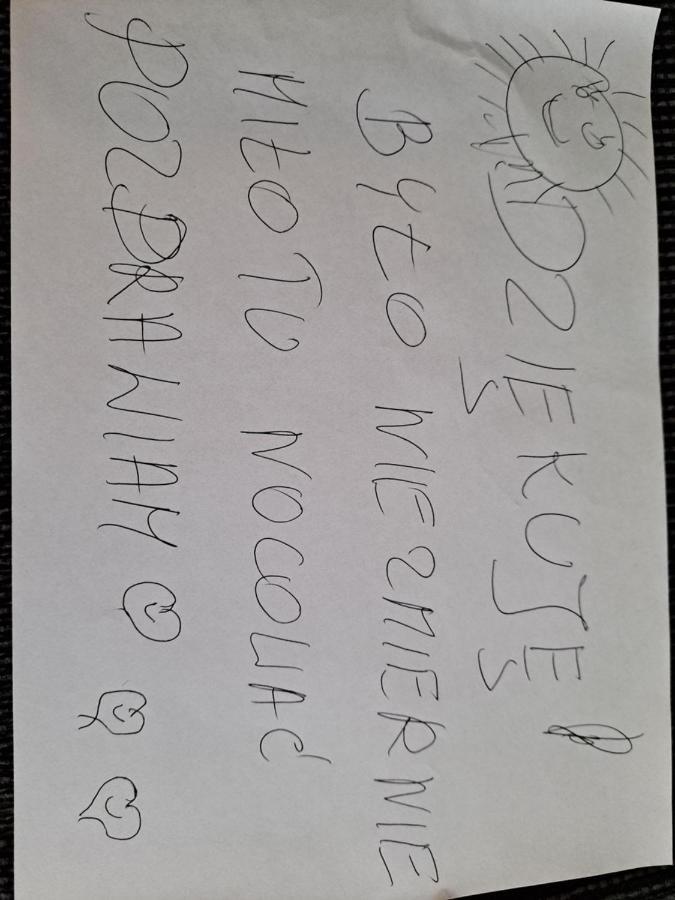 DZIĘKUJĘ
BYŁO NIEZMIERNIE
MIŁO TU NOCOWAĆ
POZDRAWIAM